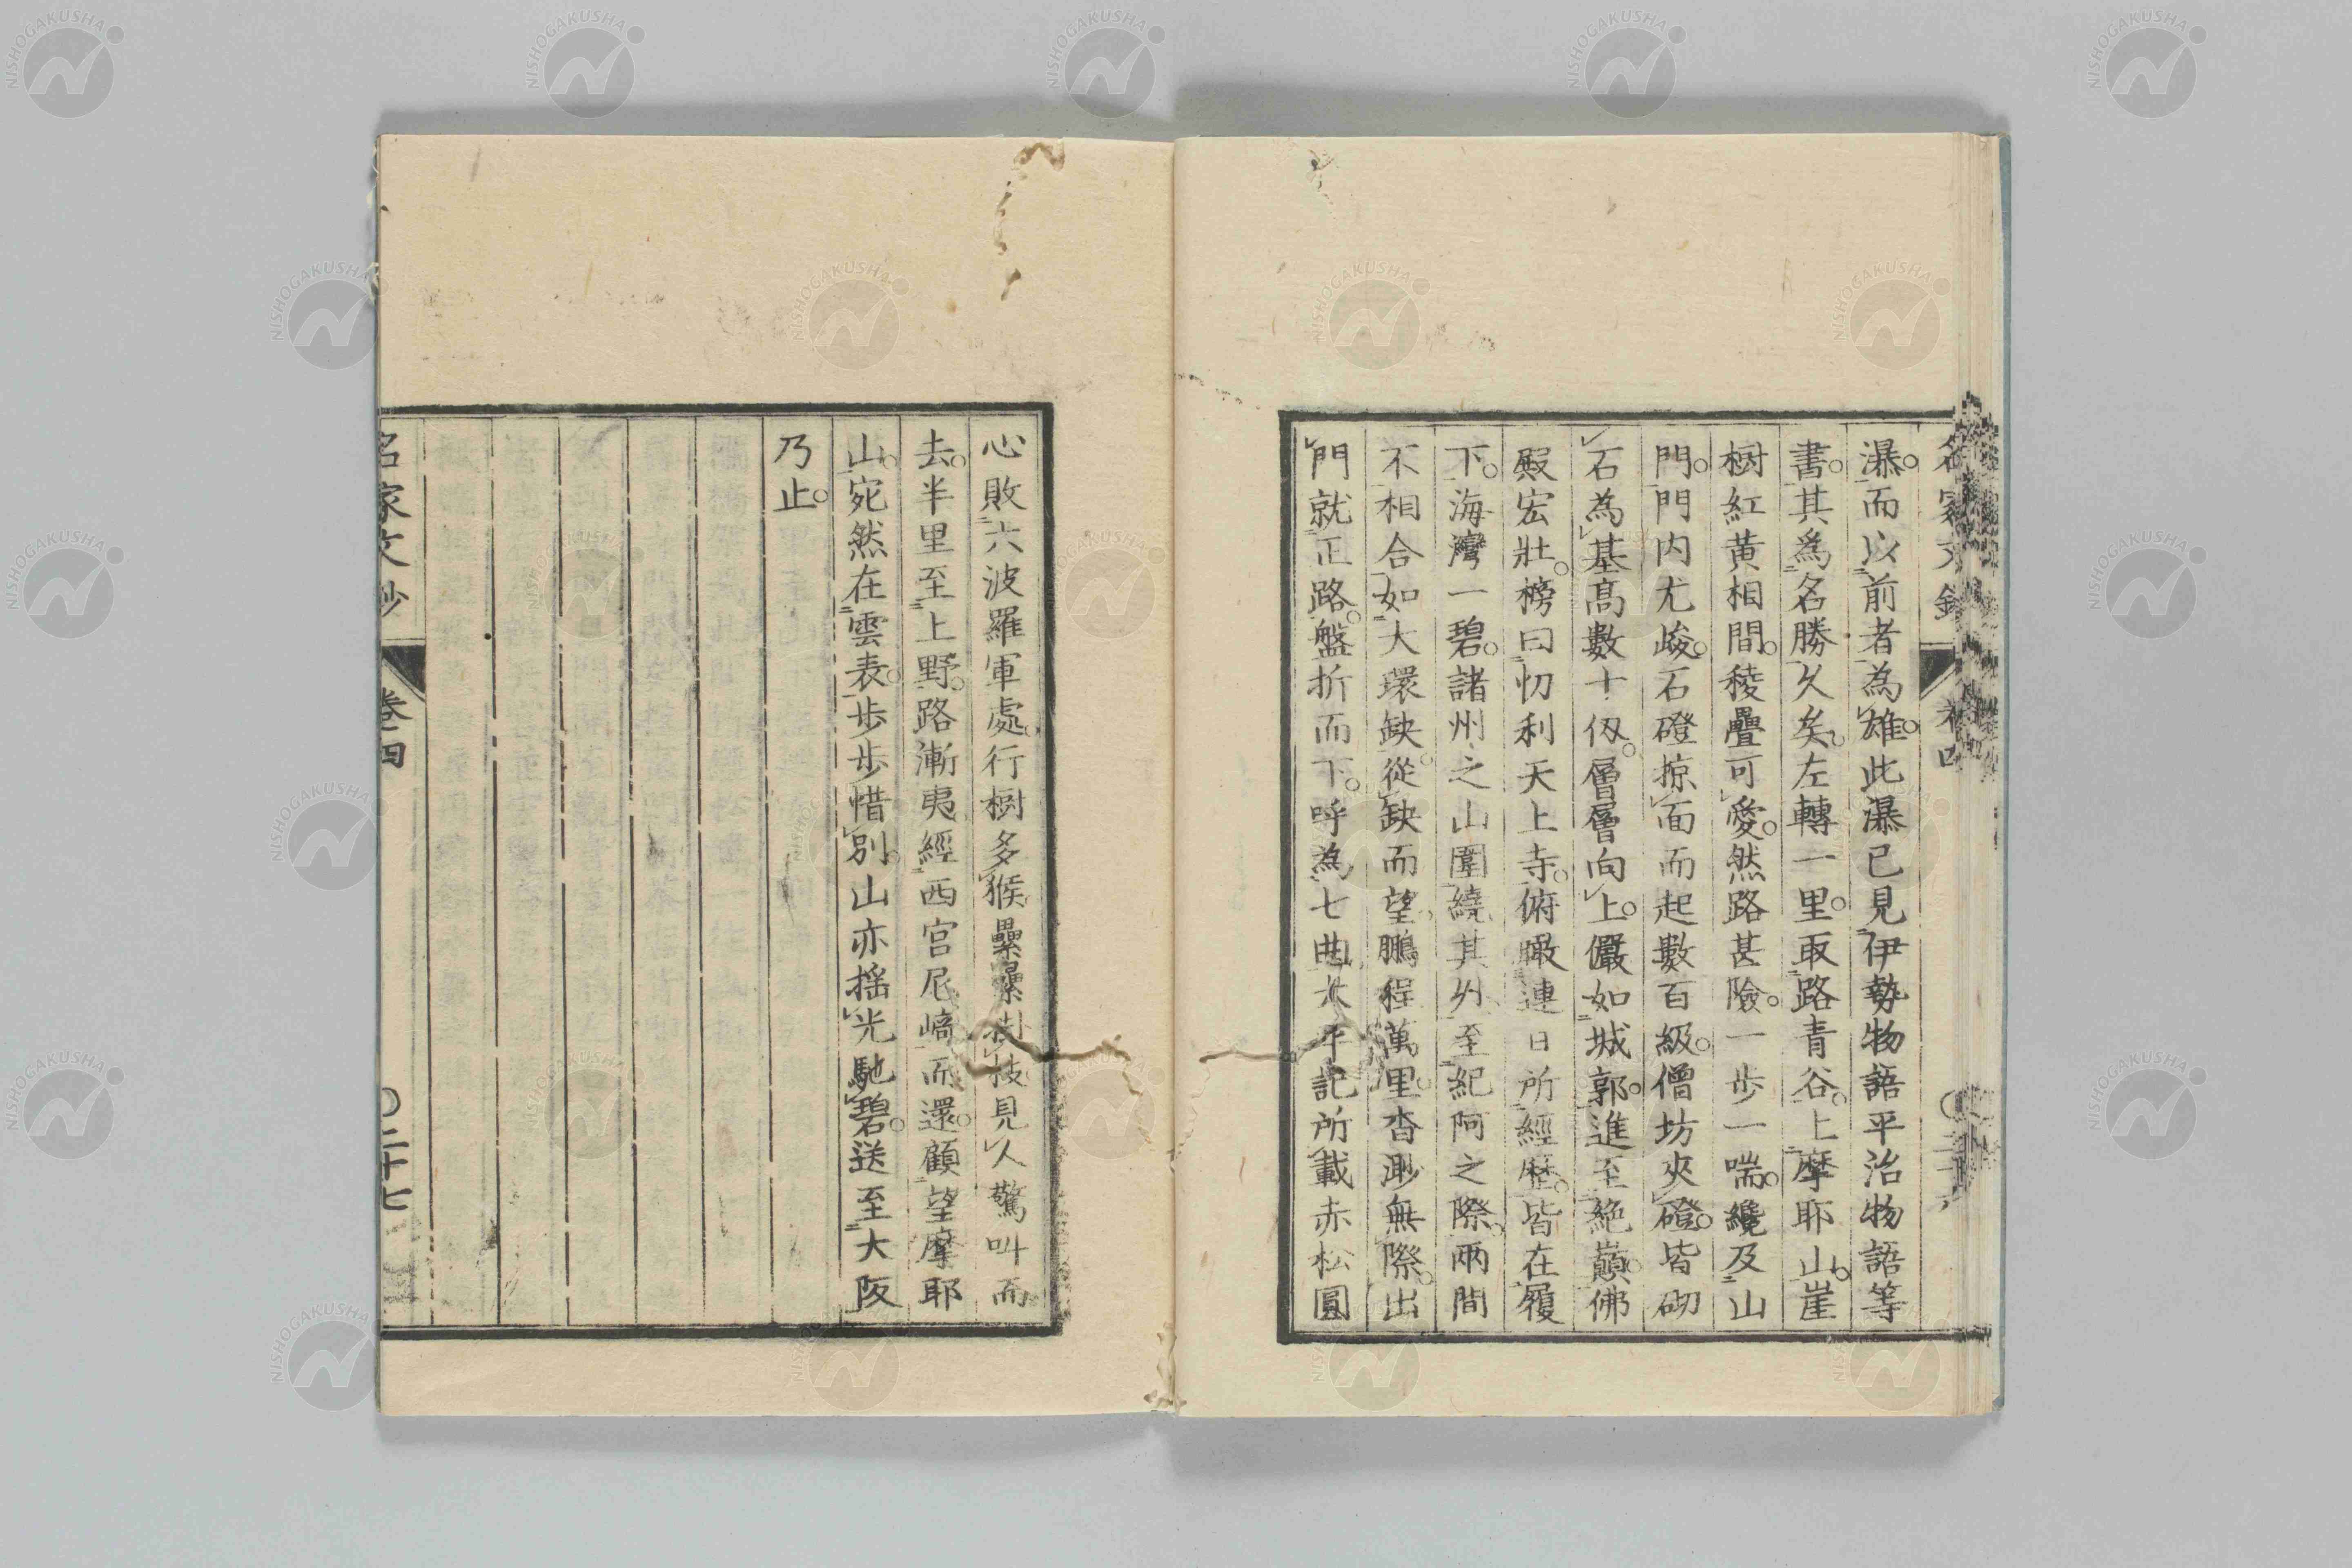 瀑。而以前者為雄。此瀑已見伊勢物語平治物語等
書。其為名勝久矣。左轉一里。取路青谷。上摩耶山。崖
樹紅黃相間。稜疊可愛。然路甚險。一步一喘。纔及山
門。門内尤峻。石磴掠面而起數百級。僧坊夾磴。皆砌
石為基。高數十仭。層層向上。儼如城郭。進至絶巔。佛
殿宏壯。榜曰忉利天上寺。俯瞰連日所經歴。皆在履
下。海灣一碧。諸州之山圍繞其外。至紀阿之際。兩間
不相合。如大環缺。從缺而望。鵬程萬里。杳渺無際。出
門就正路。盤折而下。呼為七曲。太平記所載赤松圓
心敗六波羅軍處。行樹多猴。纍纍掛枝。見人驚叫而
去。半里至上野。路漸夷。經西宮尼崎而還。顧望摩耶
山。宛然在雲表。步步惜別。山亦搖光馳碧。送至大阪
乃止。
名家文鈔
卷四
〇二十七
NISHOGAKUSHA